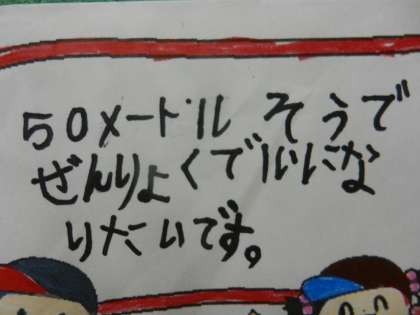 50メートル そうで
ぜんりょくで1いにな
りたいです。